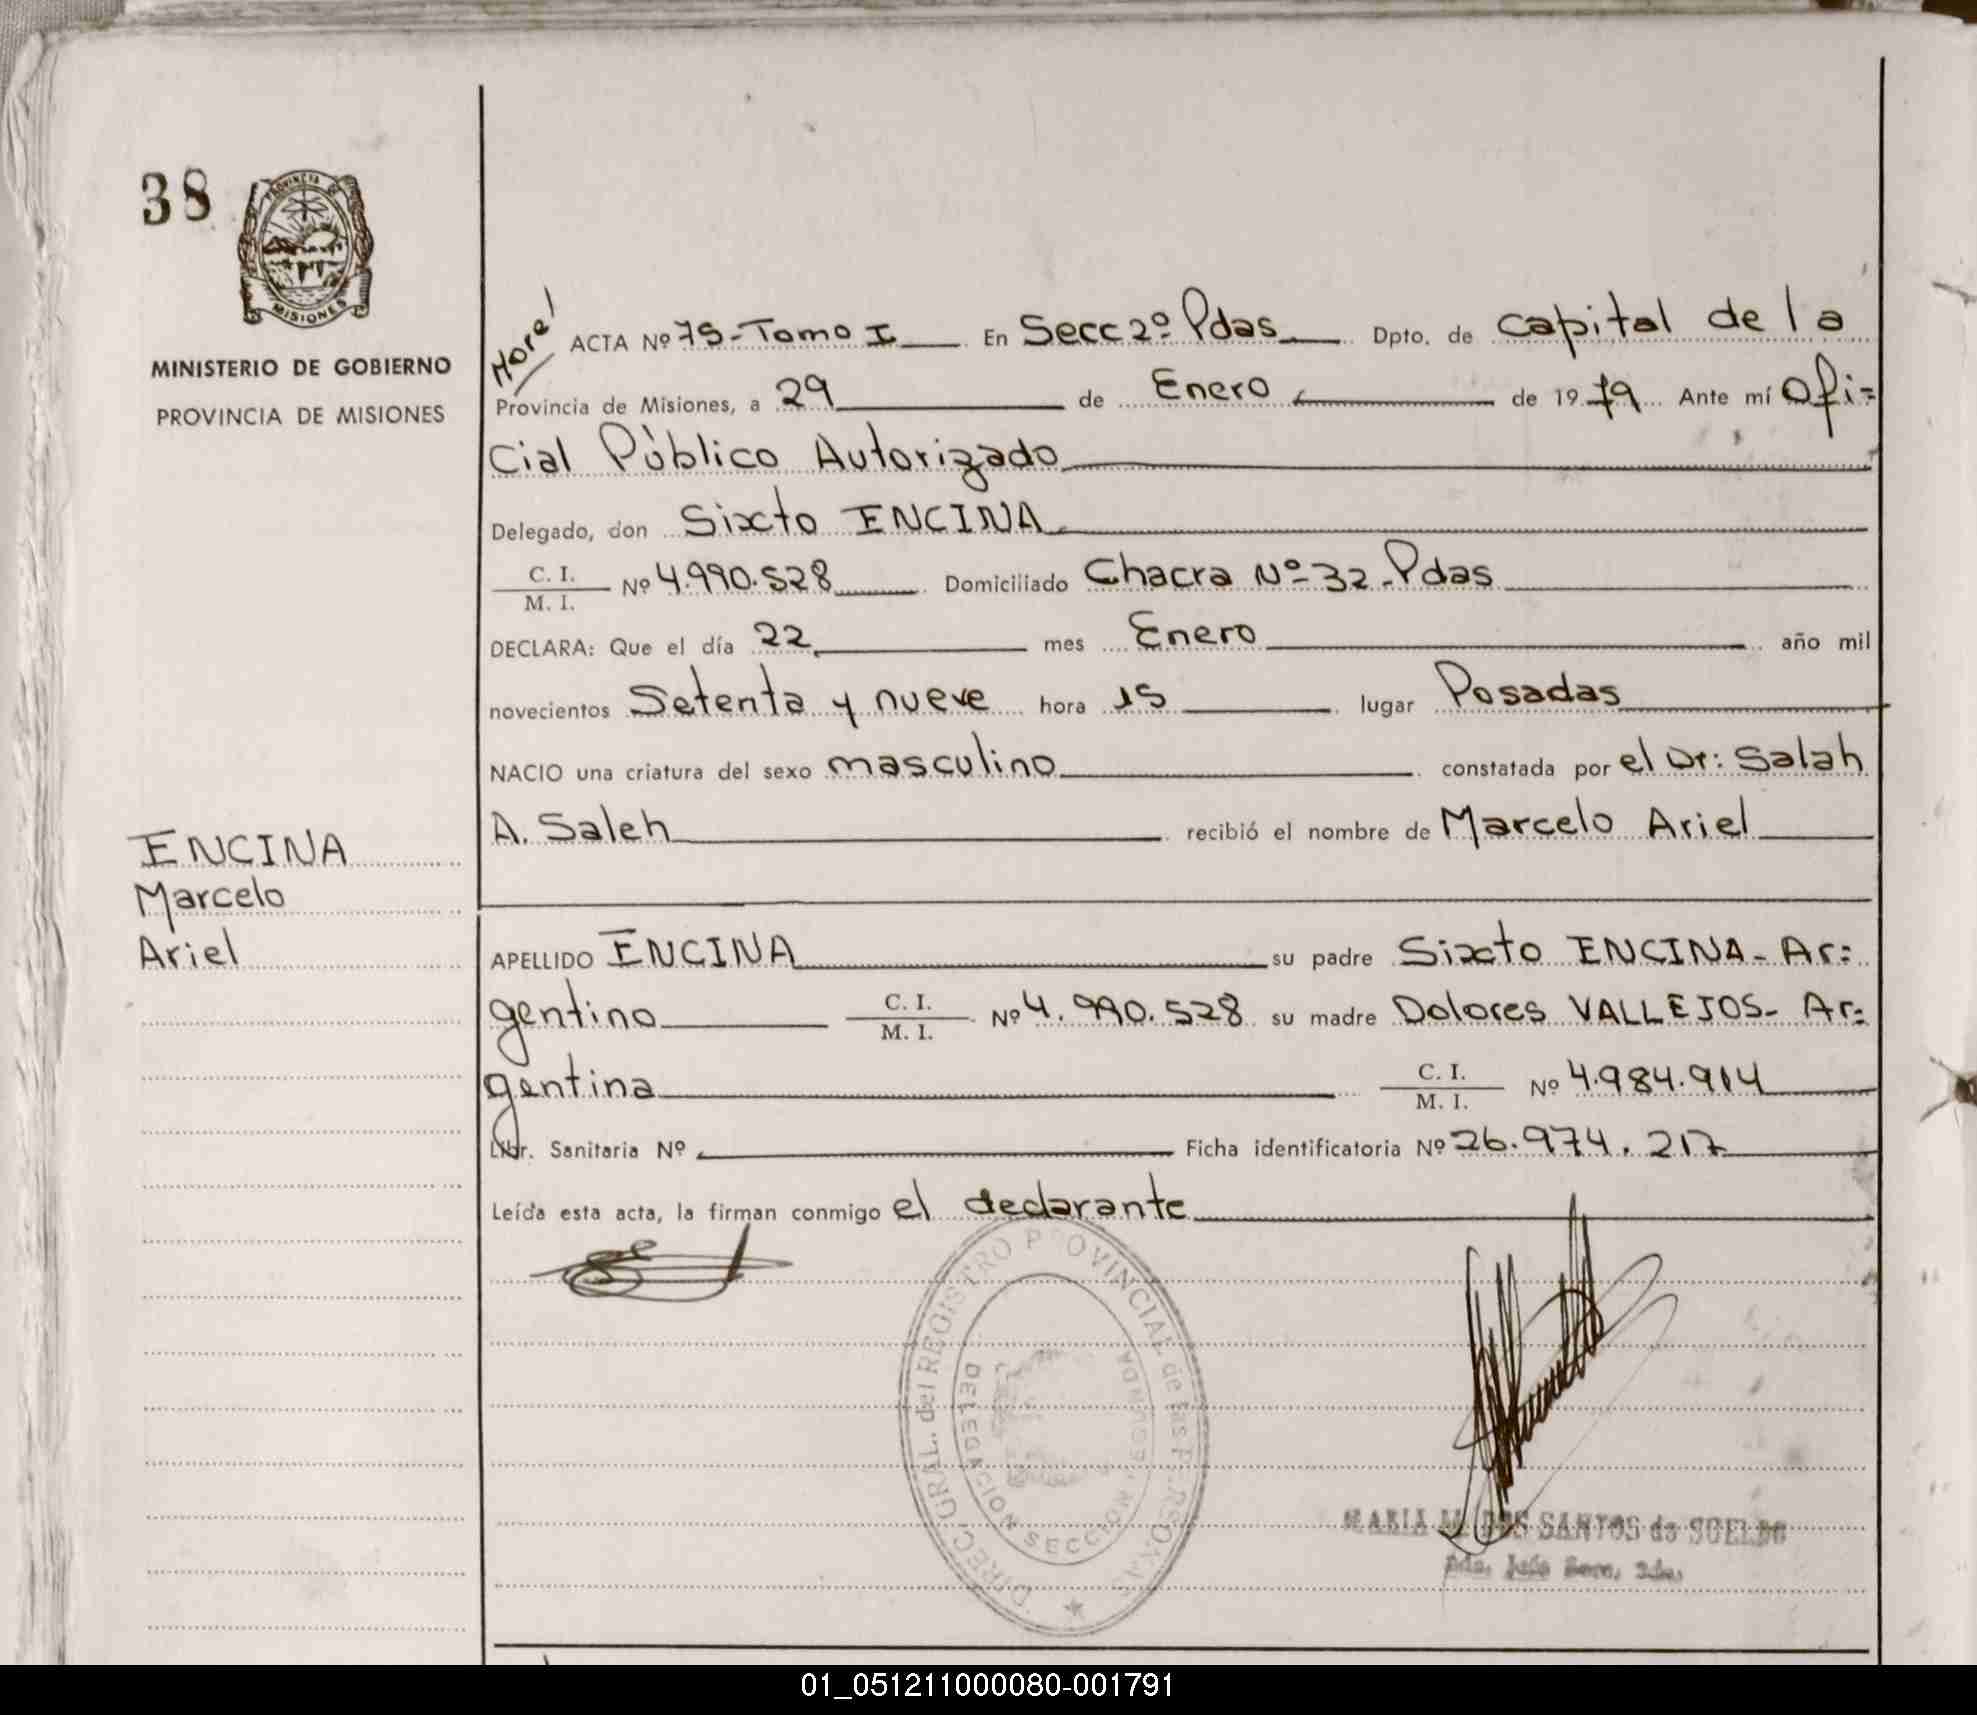 38
PROVINCIA DE
MISIONES
MINISTERIO DE GOBIERNO
PROVINCIA DE MISIONES
ENCINA
Marcelo
Ariel
ACTA Nº 75-Tomo I En Secc 2º Pdas Dpto. de capital de la
Provincia de Misiones, a 29 de Enero de 1979 Ante mí Ofi=
cial Público Autorizado
Delegado, don Sixto ENCINA
C. I.
M. I. Nº 4.990.528 Domiciliado Chacra Nº-32-Pdas
DECLARA: Que el día 22 mes Enero año mil
novecientos Setenta y nueve hora 15 lugar Posadas
NACIO una criatura del sexo masculino constatada por el Dr: Salah
A. Saleh recibió el nombre de Marcelo Ariel
APELLIDO ENCINA su padre Sixto ENCINA- Ar=
gentino C. I.
M. I. Nº 4.990.528 su madre Dolores VALLEJOS- Ar=
gentina C. I.
M. I. Nº 4.984.914
Libr. Sanitaria Nº Ficha identificatoria Nº 26.974.217
Leída esta acta, la firman conmigo el declarante
DIREC. GRAL. del REGISTRO PROVINCIAL de las PERSONAS
DELEGACION SECCION SEGUNDA
MARIA M. DOS SANTOS de SUELDO
01_051211000080-001791